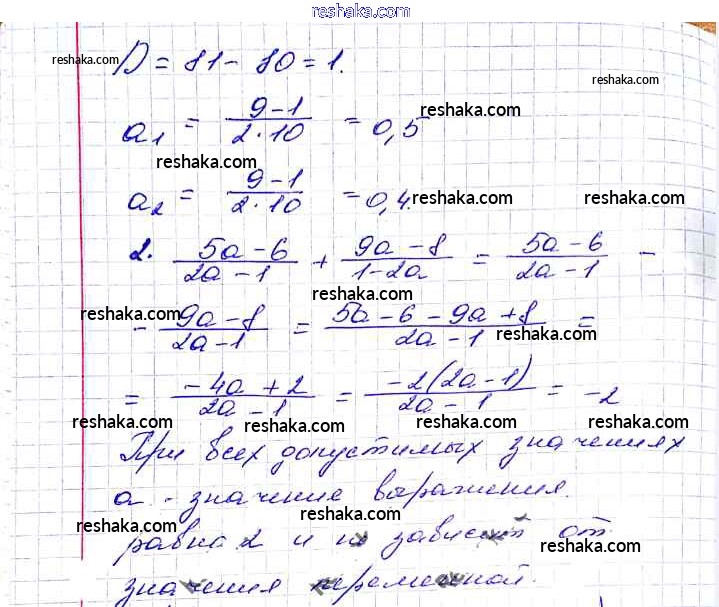 reshaka.com
D = 81 - 80 = 1.
reshaka.com
reshaka.com
a₁ = (9-1)/(2·10) = 0,5
reshaka.com
reshaka.com
a₂ = (9-1)/(2·10) = 0,4.
reshaka.com
reshaka.com
2. (5a-6)/(2a-1) + (9a-8)/(1-2a) = (5a-6)/(2a-1) -
reshaka.com
reshaka.com
- (9a-8)/(2a-1) = (5a-6-9a+8)/(2a-1) =
reshaka.com
reshaka.com
= (-4a+2)/(2a-1) = (-2(2a-1))/(2a-1) = -2
reshaka.com
reshaka.com
При всех допустимых значениях
reshaka.com
a - значение выражения.
reshaka.com
reshaka.com
равна 2 и не зависит от
reshaka.com
значения переменной.